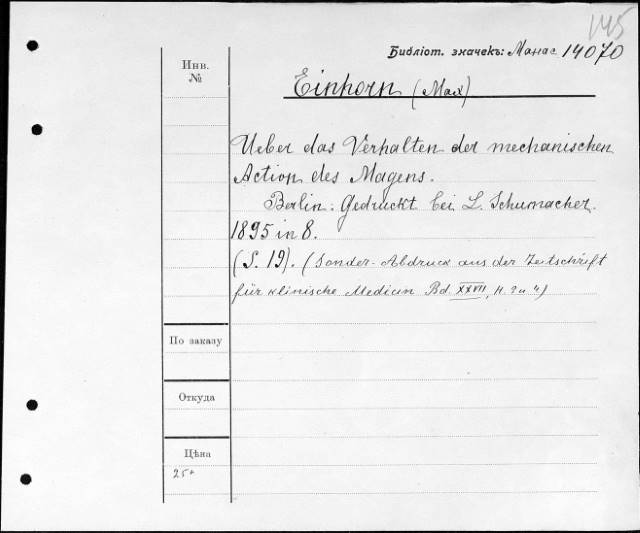 145
Библіот. значекъ: Манас 14070
Инв.
№
Einhorn (Max)
Ueber das Verhalten der mechanischen
Action des Magens.
Berlin. Gedruckt bei L. Schumacher.
1895 in 8.
(S. 19). (Sonder-Abdruck aus der Zeitschrift
für klinische Medicin Bd. XXVII, H. 3 u 4)
По заказу
Откуда
Цѣна
25